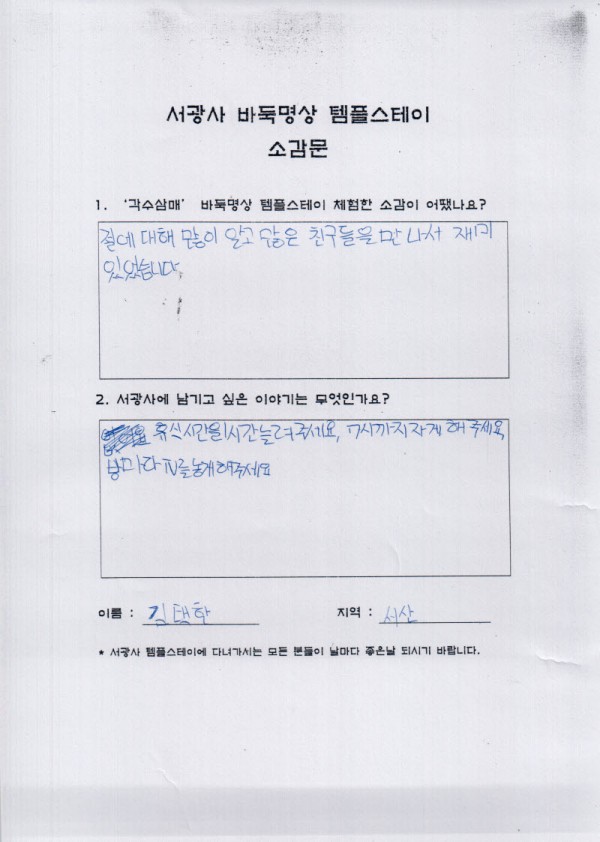 서광사 바둑명상 템플스테이
소감문
1. ‘각수삼매’ 바둑명상 템플스테이 체험한 소감이 어땠나요?
절에 대해 많이 알고 많은 친구들을 만나서 재미
있었습니다
2. 서광사에 남기고 싶은 이야기는 무엇인가요?
휴식시간을 1시간 늘려주세요, 7시까지 자게 해 주세요,
방마다 TV를 놓게 해주세요
이름 : 김택한
지역 : 서산
* 서광사 템플스테이에 다녀가시는 모든 분들이 날마다 좋은날 되시기 바랍니다.